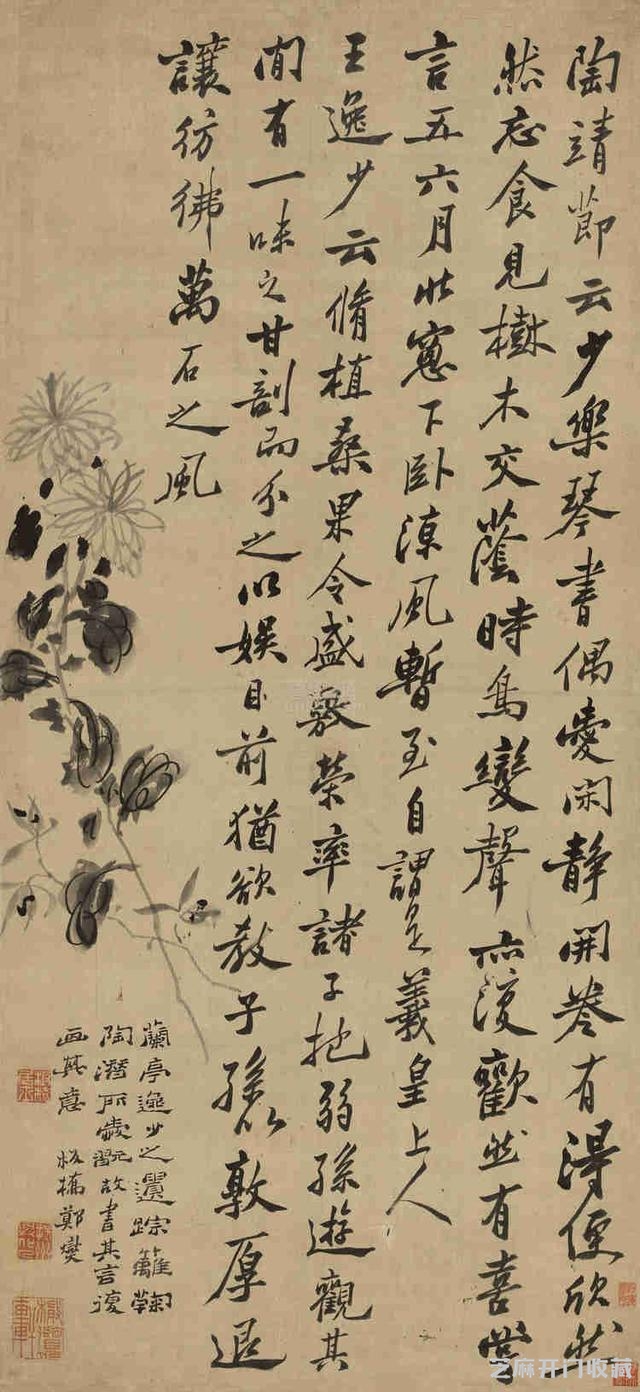 陶靖節云少樂琴書偶愛閑靜開卷有得便欣然
然忘食見樹木交蔭時鳥變聲亦復歡然有喜嘗
言五六月北窓下卧涼風暫至自謂是羲皇上人
王逸少云脩植桑果令盛敷榮率諸子抱弱孫遊觀其
間有一味之甘剖而分之以娱目前猶欲教子孫以敦厚退
讓彷彿萬石之風
蘭亭逸少之遺踪籬菊
陶潛所慨故書其言復
画其意 板橋鄭燮
芝麻开门收藏